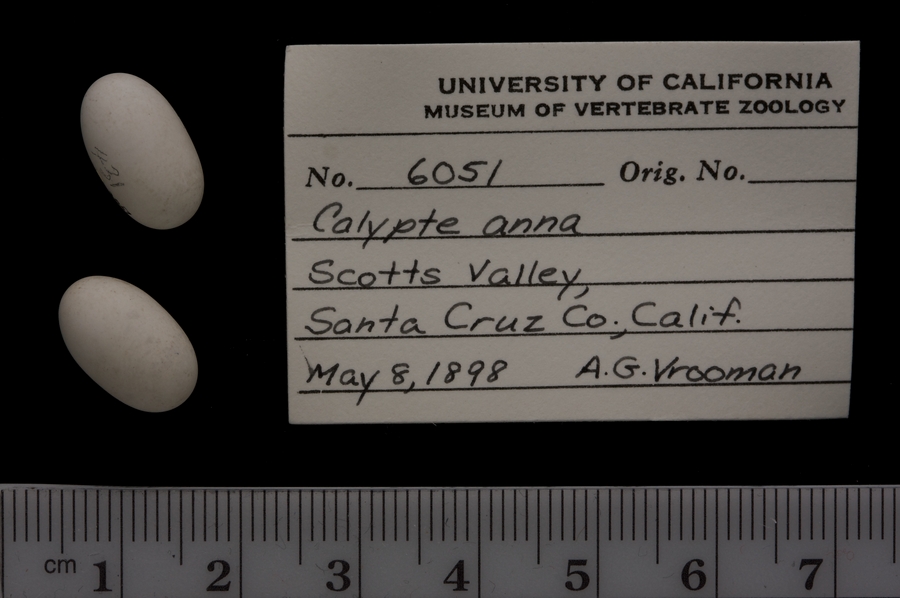 UNIVERSITY OF CALIFORNIA
MUSEUM OF VERTEBRATE ZOOLOGY
No. 6051 Orig. No.
Calypte anna
Scotts Valley,
Santa Cruz Co., Calif.
May 8, 1898 A.G. Vrooman
cm 1 2 3 4 5 6 7